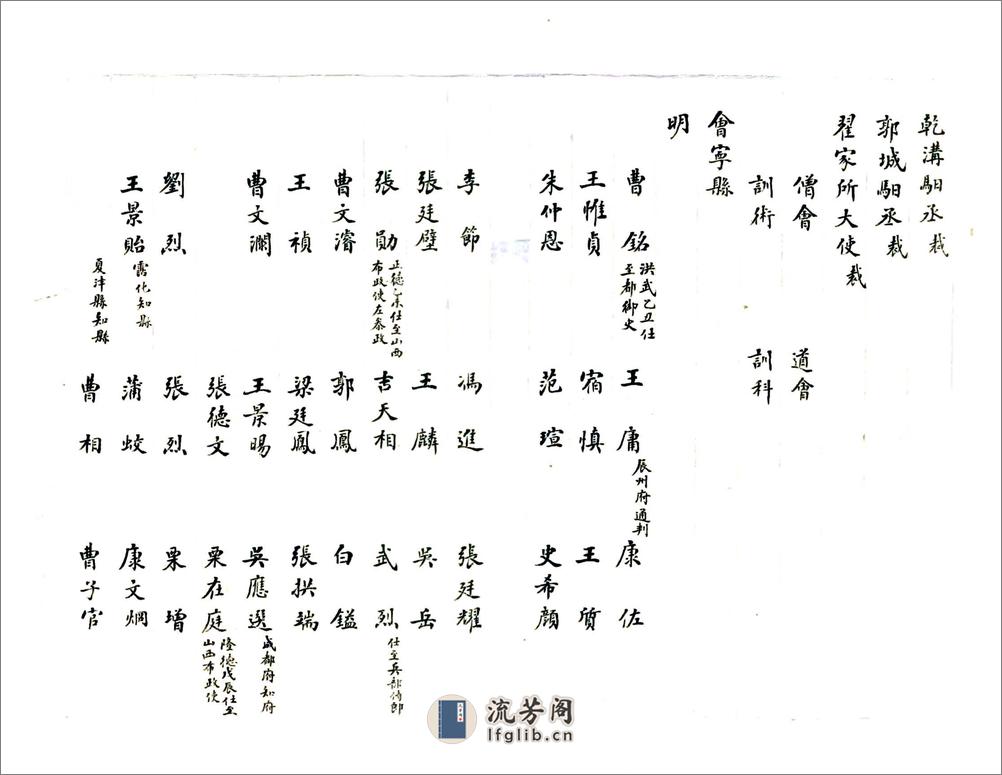 乾溝馹丞裁
郭城馹丞裁
翟家所大使裁
僧會 道會
訓術 訓科
會寧縣
明
曹銘 洪武乙丑任至都御史 王庸 辰州府通判 康佐
王惟貞 宿慎 王質
朱仲恩 范瑄 史希顏
李節 馮進 張廷耀
張廷壁 王麟 吳岳
張勛 正德乙未仕至山西布政使左叅政 吉天相 武烈 仕至兵部侍郎
曹文濬 郭鳳 白鎰
王禎 梁廷鳳 張拱端
曹文瀾 王景暘 吳應選 成都府知府
張德文 栗在庭 隆德戊辰仕至山西布政使
劉烈 張烈 栗增
王景貽 霑化知縣 蒲蛟 康文炯
夏津縣知縣 曹相 曹子官
流芳阁
lfglib.cn